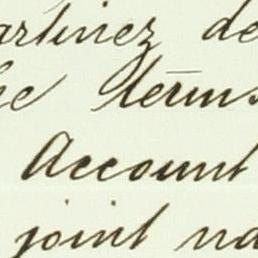 artinez de
he terms
Account
joint na